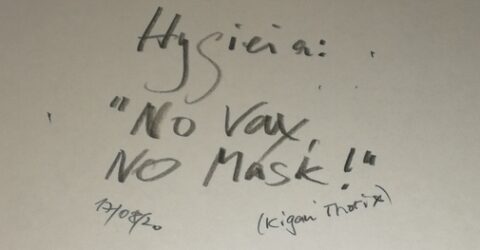 Hygieia:
"No Vax,
No Mask!"
17/08/20
(Kigani Thorix)